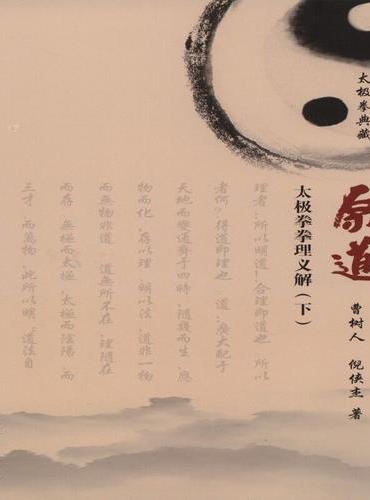 太极拳典藏
原道
太极拳拳理义解（下）
曹树人 倪侠杰 著
理者：所以明道！合理即道也 所以
者何？得道即理也 道：广大配于
天地而变通齐于四時，随機而生，應
物而化，存以理 明以法 道非一物
而無物非道 道無所不在 理随在
而存 無極而太極 太極而陰陽 而
三才 而萬物 此所以明 道法自